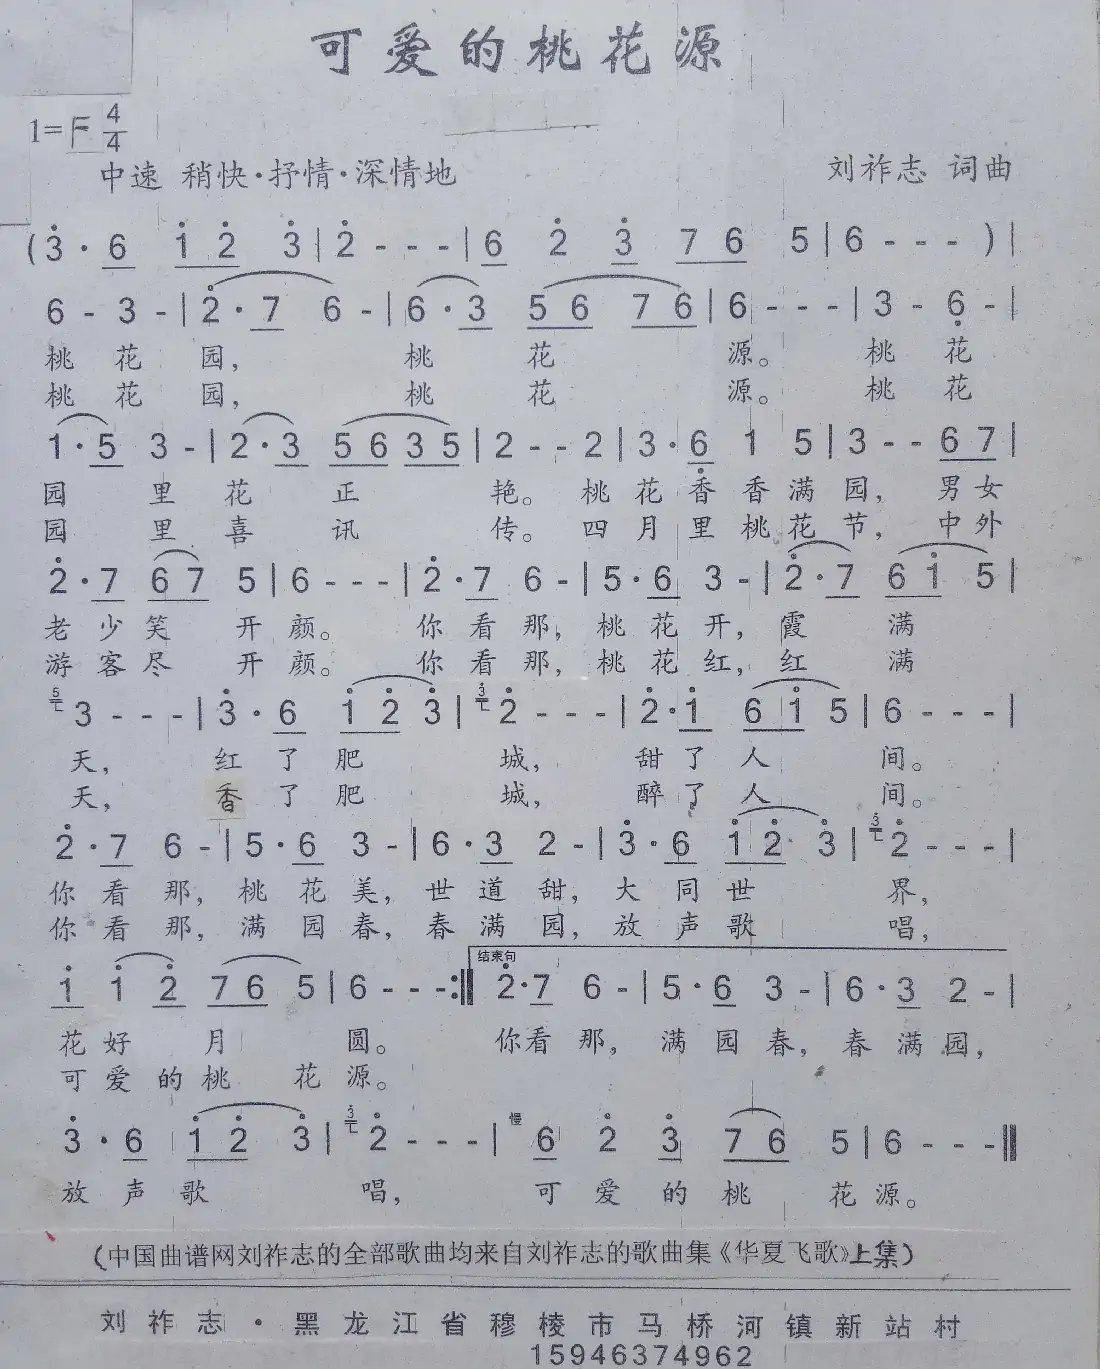 可爱的桃花源
1=F 4/4
中速 稍快·抒情·深情地 刘祚志 词曲
(3̇ · 6 1̇ 2̇ 3̇ | 2̇ - - - | 6 2̇ 3̇ 7 6 5 | 6 - - - ) |
6 - 3 - | 2̇ · 7 6 - | 6 · 3 5 6 7 6 | 6 - - - | 3 - 6̣ - |
桃 花 园, 桃 花 源。 桃 花
桃 花 园, 桃 花 源。 桃 花
1 · 5 3 - | 2 · 3 5 6 3 5 | 2 - - 2 | 3 · 6̣ 1 5 | 3 - - 6 7 |
园 里 花 正 艳。 桃 花 香 香 满 园, 男 女
园 里 喜 讯 传。 四 月 里 桃 花 节, 中 外
2̇ · 7 6 7 5 | 6 - - - | 2̇ · 7 6 - | 5 · 6 3 - | 2̇ · 7 6 1̇ 5 |
老 少 笑 开 颜。 你 看 那, 桃 花 开, 霞 满
游 客 尽 开 颜。 你 看 那, 桃 花 红, 红 满
5 3 - - - | 3̇ · 6 1̇ 2̇ 3̇ | 3̇ 2̇ - - - | 2̇ · 1̇ 6 1̇ 5 | 6 - - - |
天, 红 了 肥 城, 甜 了 人 间。
天, 香 了 肥 城, 醉 了 人 间。
2̇ · 7 6 - | 5 · 6 3 - | 6 · 3 2 - | 3̇ · 6 1̇ 2̇ 3̇ | 3̇ 2̇ - - - |
你 看 那, 桃 花 美, 世 道 甜, 大 同 世 界,
你 看 那, 满 园 春, 春 满 园, 放 声 歌 唱,
结束句
1̇ 1̇ 2̇ 7 6 5 | 6 - - - :‖ 2̇ · 7 6 - | 5 · 6 3 - | 6 · 3 2 - |
花 好 月 圆。 你 看 那, 满 园 春, 春 满 园,
可 爱 的 桃 花 源。
慢
3̇ · 6 1̇ 2̇ 3̇ | 3̇ 2̇ - - - | 6 2̇ 3̇ 7 6 5 | 6 - - - ‖
放 声 歌 唱, 可 爱 的 桃 花 源。
(中国曲谱网刘祚志的全部歌曲均来自刘祚志的歌曲集《华夏飞歌》上集)
刘祚志·黑龙江省穆棱市马桥河镇新站村
15946374962